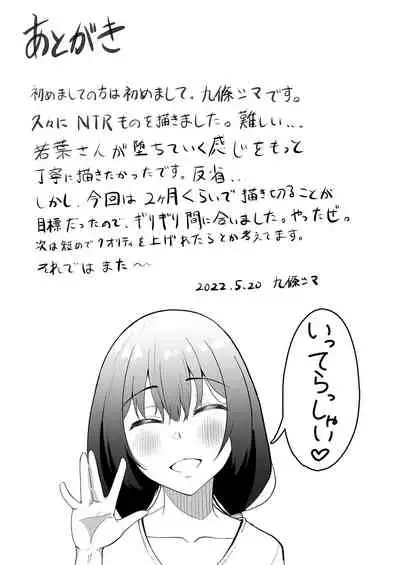 あとがき
初めましての方は初めまして、九條シマです。
久々にNTRものを描きました。難しい...
若葉さんが堕ちていく感じをもっと
丁寧に描きたかったです。反省..
しかし、今回は2ヶ月くらいで描き切ることが
目標だったので、ギリギリ間に合いました。やったぜ。
次は短めでクオリティを上げれたらとか考えてます。
それではまた〜
2022.5.20 九條シマ
いってらっしゃい♡